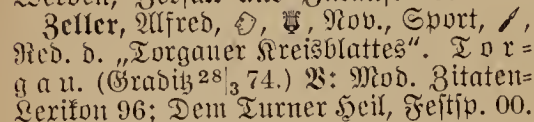 Zeller, Alfred, Nov., Sport,
Red. d. „Torgauer Kreisblattes“. Tor=
gau. (Graditz 28|3 74.) V: Mod. Zitaten=
Lexikon 96; Dem Turner Heil, Festsp. 00.